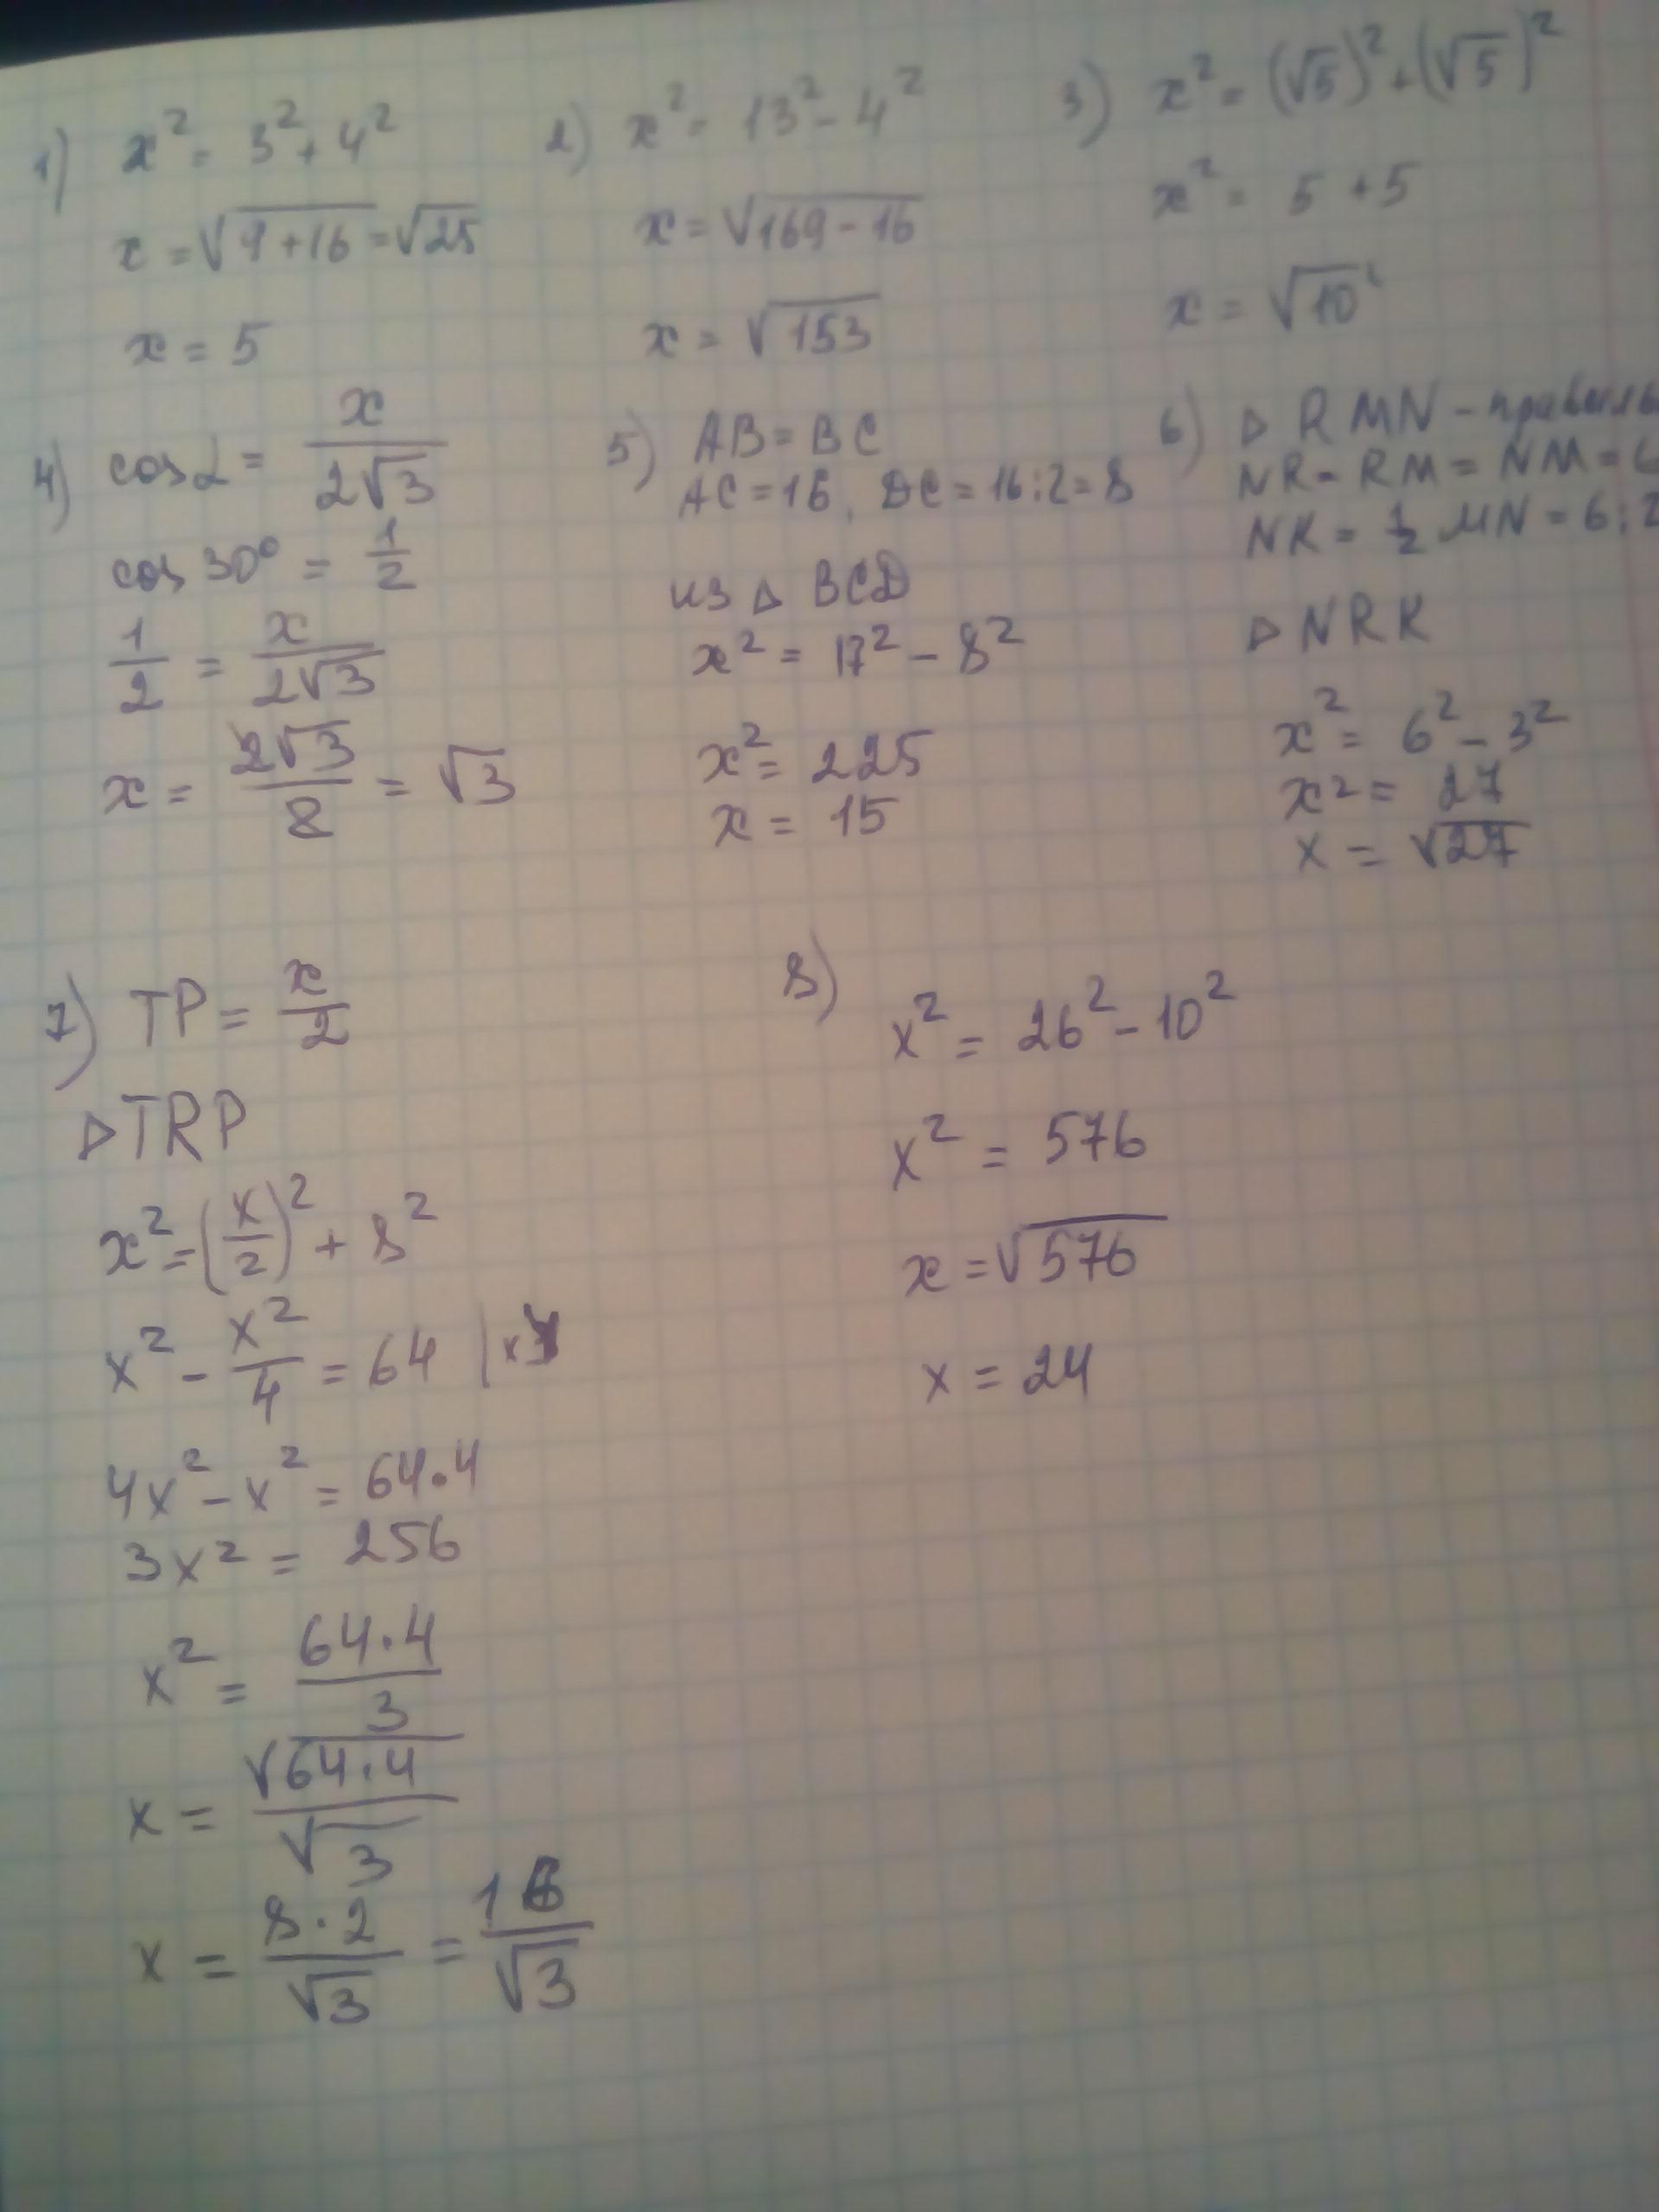 1) x² = 3² + 4²
x = √9+16 = √25
x = 5
2) x² = 13² - 4²
x = √169-16
x = √153
3) x² = (√5)² + (√5)²
x² = 5 + 5
x = √10
4) cos α = x/2√3
cos 30° = 1/2
1/2 = x/2√3
x = 2√3/2 = √3
5) AB = BC
AC = 16, DC = 16:2 = 8
из △ BCD
x² = 17² - 8²
x² = 225
x = 15
6) △ RMN -
NR = RM = NM = 6
NK = 1/2 MN = 6:2
△ NRK
x² = 6² - 3²
x² = 27
x = √27
7) TP = x/2
△TRP
x² = (x/2)² + 8²
x² - x²/4 = 64 |
4x² - x² = 64·4
3x² = 256
x² = 64·4/3
x = √64·4/√3
x = 8·2/√3 = 16/√3
8)
x² = 26² - 10²
x² = 576
x = √576
x = 24